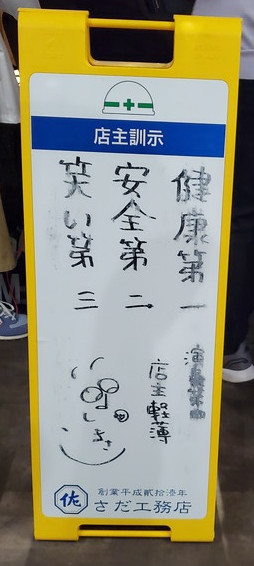 店主訓示
健康第一
安全第二
笑い第三
店主軽薄
佐
創業平成貳拾漆年
さだ工務店